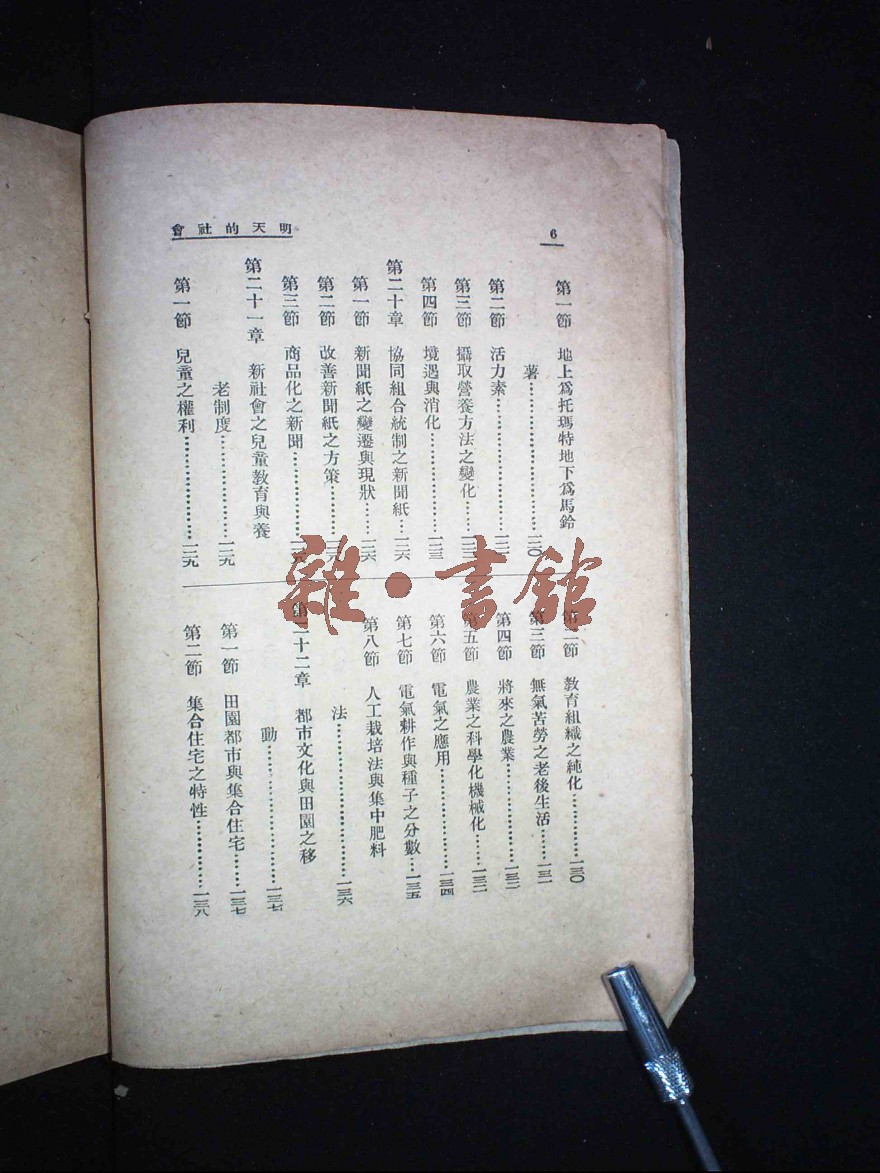 6
明天的社會
第一節　地上爲托瑪特地下爲馬鈴
薯……………………一二〇
第二節　活力素……………………
第三節　攝取營養方法之變化……
第四節　境遇與消化………………一二三
第二十章　協同組合統制之新聞紙…一二六
第一節　新聞紙之變遷與現狀……一二六
第二節　改善新聞紙之方策………一二八
第三節　商品化之新聞……………
第二十一章　新社會之兒童教育與養
老制度…………………一二九
第一節　兒童之權利………………一二九
第二節　教育組織之純化…………一三〇
第三節　無氣苦勞之老後生活……一三一
第四節　將來之農業………………一三二
第五節　農業之科學化機械化……一三二
第六節　電氣之應用………………一三四
第七節　電氣耕作與種子之分數…一三五
第八節　人工栽培法與集中肥料
法………………………一三六
第二十二章　都市文化與田園之移
動………………………一三七
第一節　田園都市與集合住宅……一三七
第二節　集合住宅之特性…………一三八
雜·書館